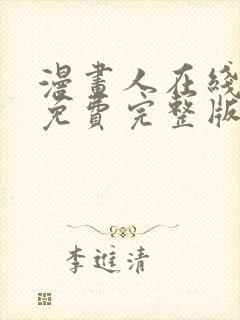 漫畫人在綫
免費完整版
李進清